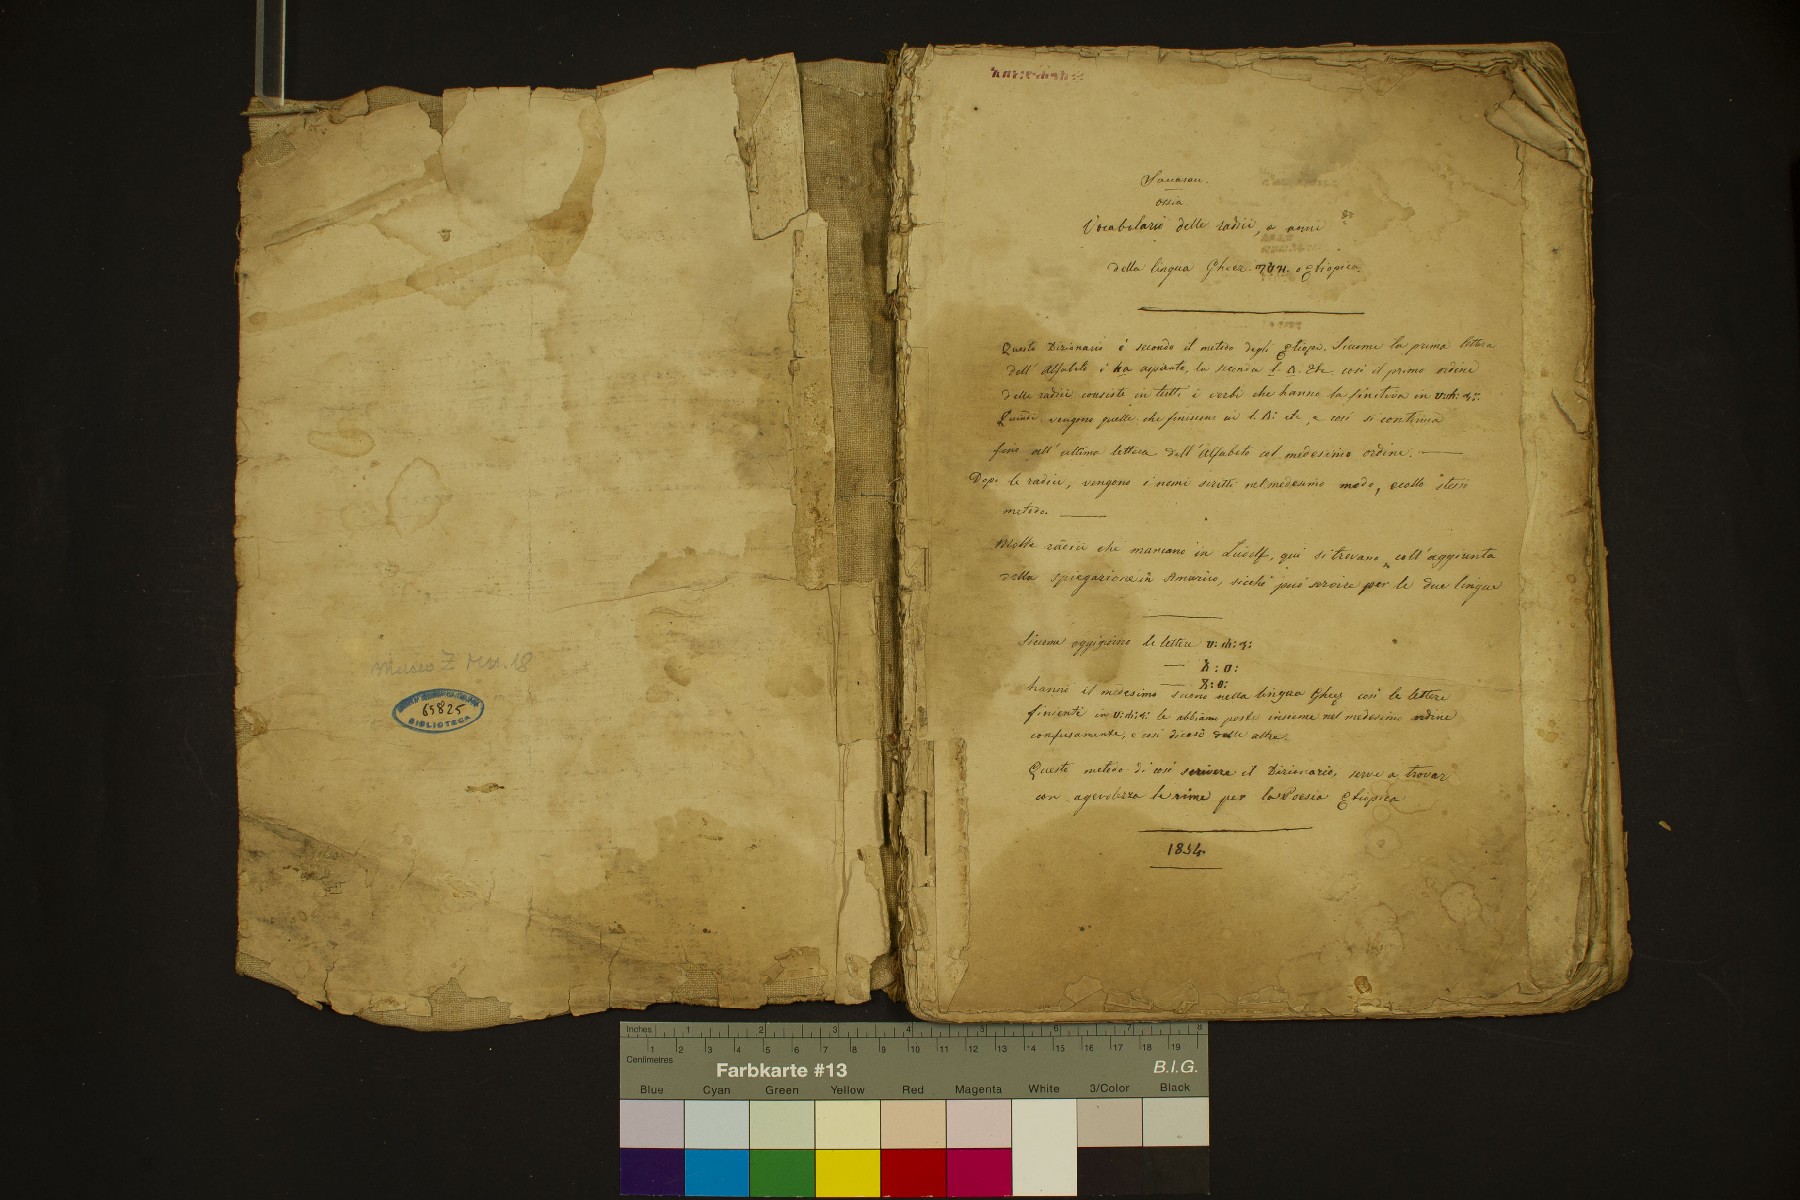 Museo Z ms. 18
65825
BIBLIOTECA
Sauasau.
ossia
Vocabolario delle radici, e nomi
della lingua Gheez ግዕዝ. o Etiopica.
Questo Dizionario è secondo il metodo degli Etiopi. Siccome la prima lettera
dell' Alfabeto è ha aspirata, la seconda l. ለ. etc. così il primo ordine
delle radici consiste in tutti i verbi che hanno la finitiva in ሀ:ሐ:ኀ:
vengono quelli che finiscono in l. ለ: etc, e così si continua
fino all' ultima lettera dell' Alfabeto col medesimo ordine.
Dopo le radici, vengono i nomi scritti nel medesimo modo, e collo stesso
metodo.
Molte radici che mancano in Ludolf, qui si trovano, coll' aggiunta
della spiegazione in Amarico, sicchè può servire per le due lingue
Siccome oggigiorno le lettere ሀ:ሐ:ኀ:
አ:ዐ:
ጸ:ፀ:
hanno il medesimo suono nella lingua Gheez così le lettere
finienti in ሀ:ሐ:ኀ: le abbiamo poste insieme nel medesimo ordine
confusamente, e così dicasi delle altre.
Questo metodo di così scrivere il Dizionario, serve a trovar
con agevolezza le rime per la Poesia Etiopica
1854.
Inches 1 2 3 4 5 6 7 8
Centimetres 1 2 3 4 5 6 7 8 9 10 11 12 13 14 15 16 17 18 19
Farbkarte #13 B.I.G.
Blue Cyan Green Yellow Red Magenta White 3/Color Black